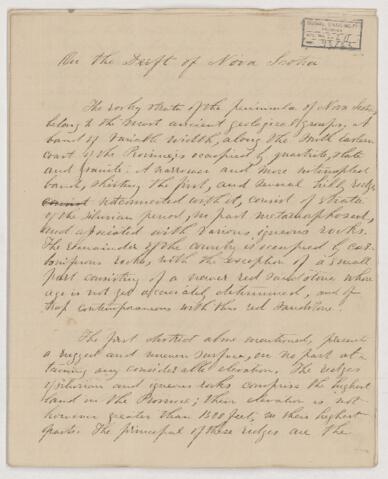 On the Drift of Nova Scotia
The rocky strata of the peninsula of Nova Scotia
belong to the most ancient geological groups. A
band of variable width, along the South Eastern
coast of the Province is occupied by quartzite, slate
and granite. A narrower and more interrupted
band, skirting the first, and several hilly ridges
unconnected with it, consist of strata
of the silurian period, in part metamorphosed,
and associated with various igneous rocks.
The remainder of the country is occupied by car-
boniferous rocks, with the exception of a small
part consisting of a newer red sandstone whose
age is not yet accurately determined, and of
trap contemporaneous with this red sandstone.
The first district above mentioned, presents
a rugged and uneven surface, in no part at-
taining any considerable elevation. The ridges
of silurian and igneous rocks comprise the highest
land in the Province; their elevation is not
however greater than 1200 feet, in their highest
parts. The principal of these ridges are the